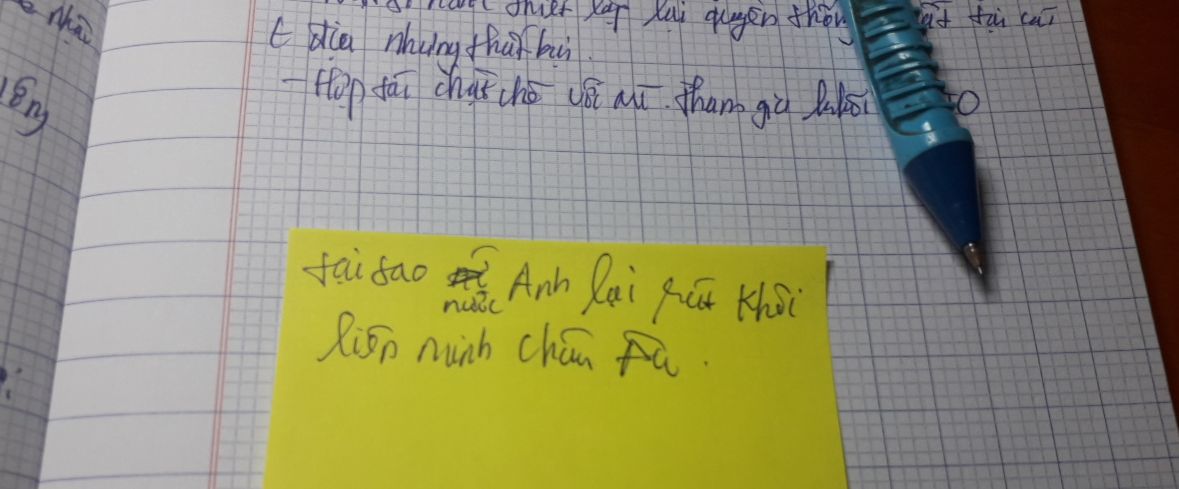 thiết lập lại quyền thống tại các
t địa nhưng thất bại.
- Hợp tác chặt chẽ với Mĩ. Tham gia khối O
tại sao nước Anh lại rút khỏi
liên minh châu Âu.